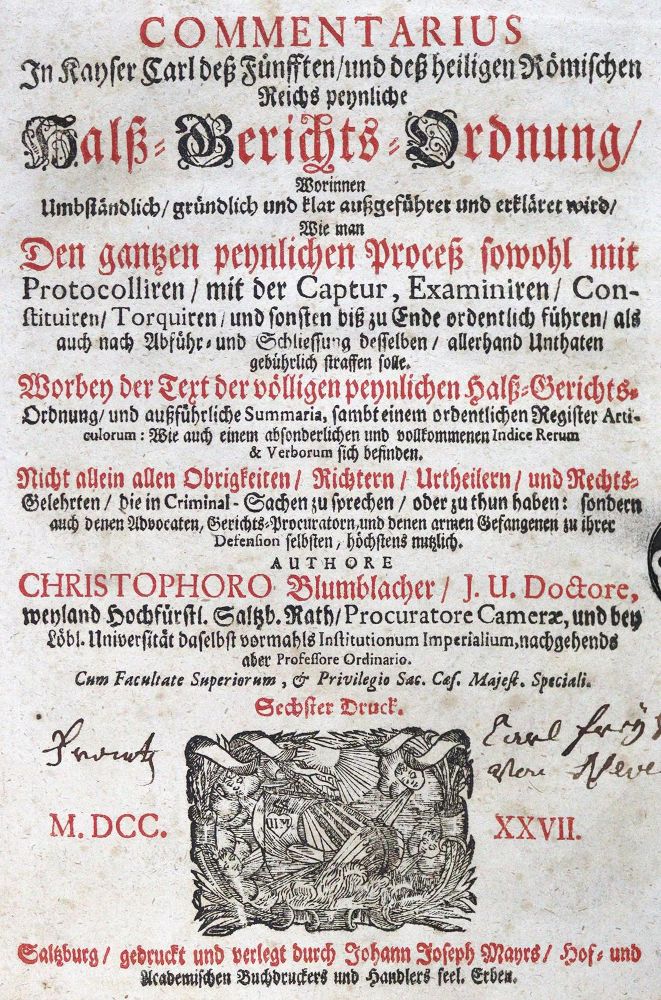 COMMENTARIUS
In Kayser Carl deß Fünfften/und deß heiligen Römischen
Reichs peynliche
Halß-Gerichts-Ordnung/
Worinnen
Umbständlich/ gründlich und klar außgeführet und erkläret wird/
Wie man
Den gantzen peynlichen Proceß sowohl mit
Protocolliren/ mit der Captur, Examiniren/ Con-
stituiren/ Torquiren/ und sonsten biß zu Ende ordentlich führen/ als
auch nach Abführ- und Schliessung desselben/ allerhand Unthaten
gebührlich straffen solle.
Worbey der Text der völligen peynlichen Halß-Gerichts-
Ordnung/ und außführliche Summaria, sambt einem ordentlichen Register Arti-
culorum: Wie auch einem absonderlichen und vollkommenen Indice Rerum
& Verborum sich befinden.
Nicht allein allen Obrigkeiten/ Richtern/ Urtheilern/ und Rechts-
Gelehrten/ die in Criminal-Sachen zu sprechen/ oder zu thun haben: sondern
auch denen Advocaten, Gerichts-Procuratorn, und denen armen Gefangenen zu ihrer
Defension selbsten, höchstens nutzlich.
AUTHORE
CHRISTOPHORO Blumblacher/ J. U. Doctore,
weyland Hochfürstl. Saltzb. Rath/ Procuratore Cameræ, und bey
Löbl. Universität daselbst vormahls Institutionum Imperialium, nachgehends
aber Professore Ordinario.
Cum Facultate Superiorum, & Privilegio Sac. Cæs. Majest. Speciali.
Sechster Druck.
Carl frey
von
M. DCC. XXVII.
Saltzburg/ gedruckt und verlegt durch Johann Joseph Mayrs/ Hof- und
Academischen Buchdruckers und Handlers seel. Erben.